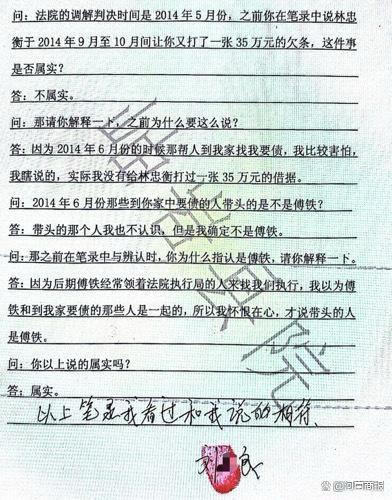 问：法院的调解判决时间是 2014 年 5 月份，之前你在笔录中说林忠
衡于 2014 年 9 月至 10 月间让你又打了一张 35 万元的欠条，这件事
是否属实？
答：不属实。
问：那请你解释一下，之前为什么要这么说？
答：因为 2014 年 6 月份的时候那帮人到我家找我要债，我比较害怕，
我瞎说的，实际我没有给林忠衡打过一张 35 万元的借据。
问：2014 年 6 月份那些到你家中要债的人带头的是不是傅铁？
答：带头的那个人我也不认识，但是我确定不是傅铁。
问：那之前在笔录中与辨认时，你为什么指认是傅铁，请你解释一下。
答：因为后期傅铁经常领着法院执行局的人来找我们执行，我以为傅
铁和到我家要债的那些人是一起的，所以我怀恨在心，才说带头的人
是傅铁。
问：你以上说的属实吗？
答：属实。
以上笔录我看过和我说的相符。
院
@河声商报